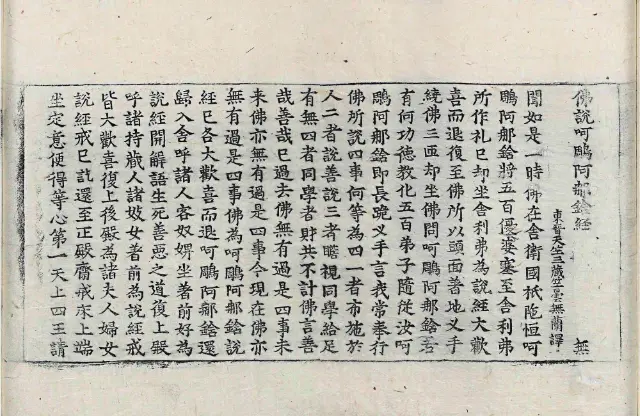 佛說呵鵰阿那鋡經 無
東晉天竺三藏竺曇無蘭譯
聞如是一時佛在舍衛國祇陁恒呵
鵰阿那鋡將五百優婆塞至舍利弗
所作礼已却坐舍利弗為說經大歡
喜而退復至佛所以頭面著地叉手
繞佛三匝却坐佛問呵鵰阿那鋡若
有何功德教化五百弟子隨從汝呵
鵰阿那鋡即長跪叉手言我常奉行
佛所說四事何等為四一者布施於
人二者說善說三者瞻視同學給足
有無四者同學者財共不計佛言善
哉善哉已過去佛無有過是四事未
來佛亦無有過是四事今現在佛亦
無有過是四事佛為呵鵰阿那鋡說
經已各大歡喜而退呵鵰阿那鋡還
歸入舍呼諸人客奴婢坐著前好為
說經開解語生死善惡之道復上殿
呼諸持歲人諸妓女著前為說經戒
皆大歡喜復上後殿為諸夫人婦女
說經戒已訖還至正殿齋戒床上端
坐定意便得等心第一天上四王請